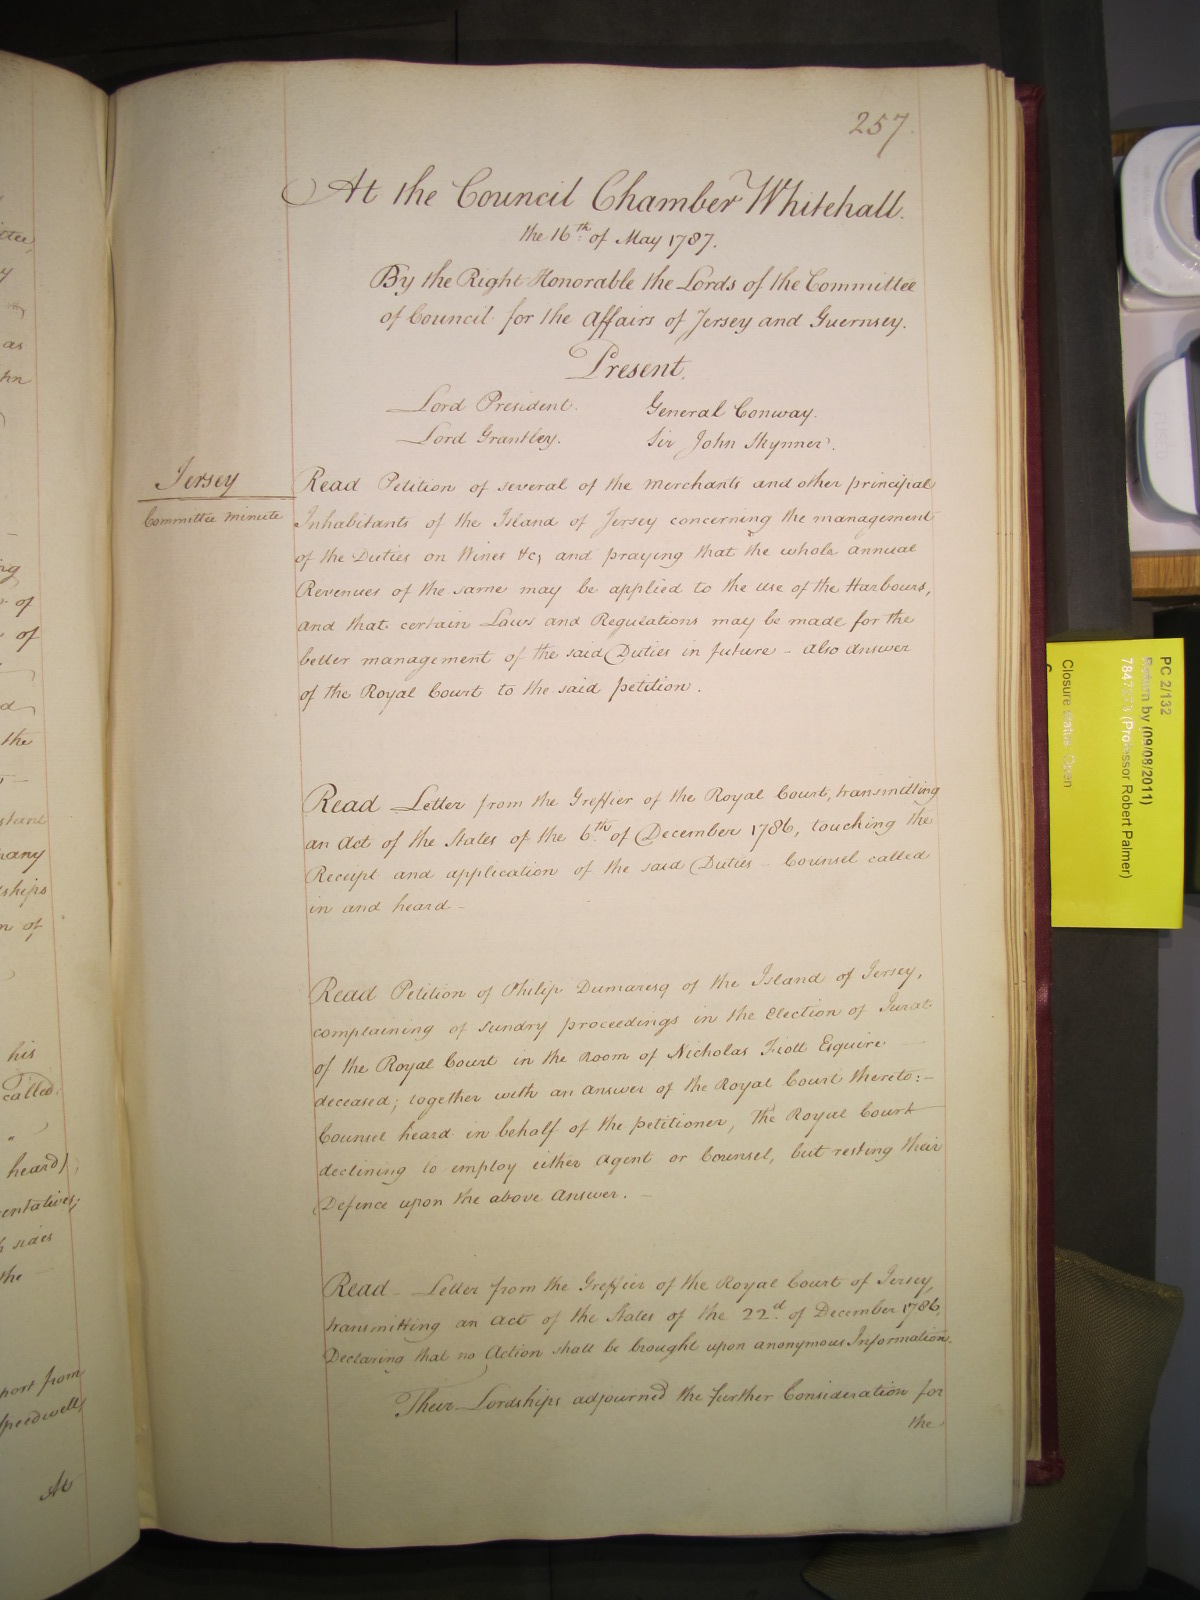 257.
At the Council Chamber Whitehall.
the 16th of May 1787.
By the Right Honorable the Lords of the Committee
of Council for the Affairs of Jersey and Guernsey.
Present.
Lord President. General Conway.
Lord Grantley. Sir John Skynner.
Jersey
Committee Minute
Read Petition of several of the Merchants and other principal
Inhabitants of the Island of Jersey concerning the management
of the Duties on Wines &c, and praying that the whole annual
Revenues of the same may be applied to the use of the Harbours,
and that certain Laws and Regulations may be made for the
better management of the said Duties in future - also Answer
of the Royal Court to the said petition.
Read Letter from the Greffier of the Royal Court, transmitting
an Act of the States of the 6th of December 1786, touching the
Receipt and application of the said Duties - Counsel called
in and heard -
Read Petition of Philip Dumaresq of the Island of Jersey,
complaining of sundry proceedings in the Election of Jurat
of the Royal Court in the Room of Nicholas Fiott Esquire
deceased; together with an Answer of the Royal Court thereto:-
Counsel heard in behalf of the petitioner, the Royal Court
declining to employ either Agent or Counsel, but resting their
Defence upon the above Answer. -
Read - Letter from the Greffier of the Royal Court of Jersey,
transmitting an Act of the States of the 22d of December 1786,
Declaring that no Action shall be brought upon anonymous Information.
Their Lordships adjourned the further Consideration for
the
as
of
of
the
many
of
his
called.
heard)
sides
the
from
Speedwell
At
PC 2/132
Return by (09/08/2011)
(Professor Robert Palmer)
Closure status: Open